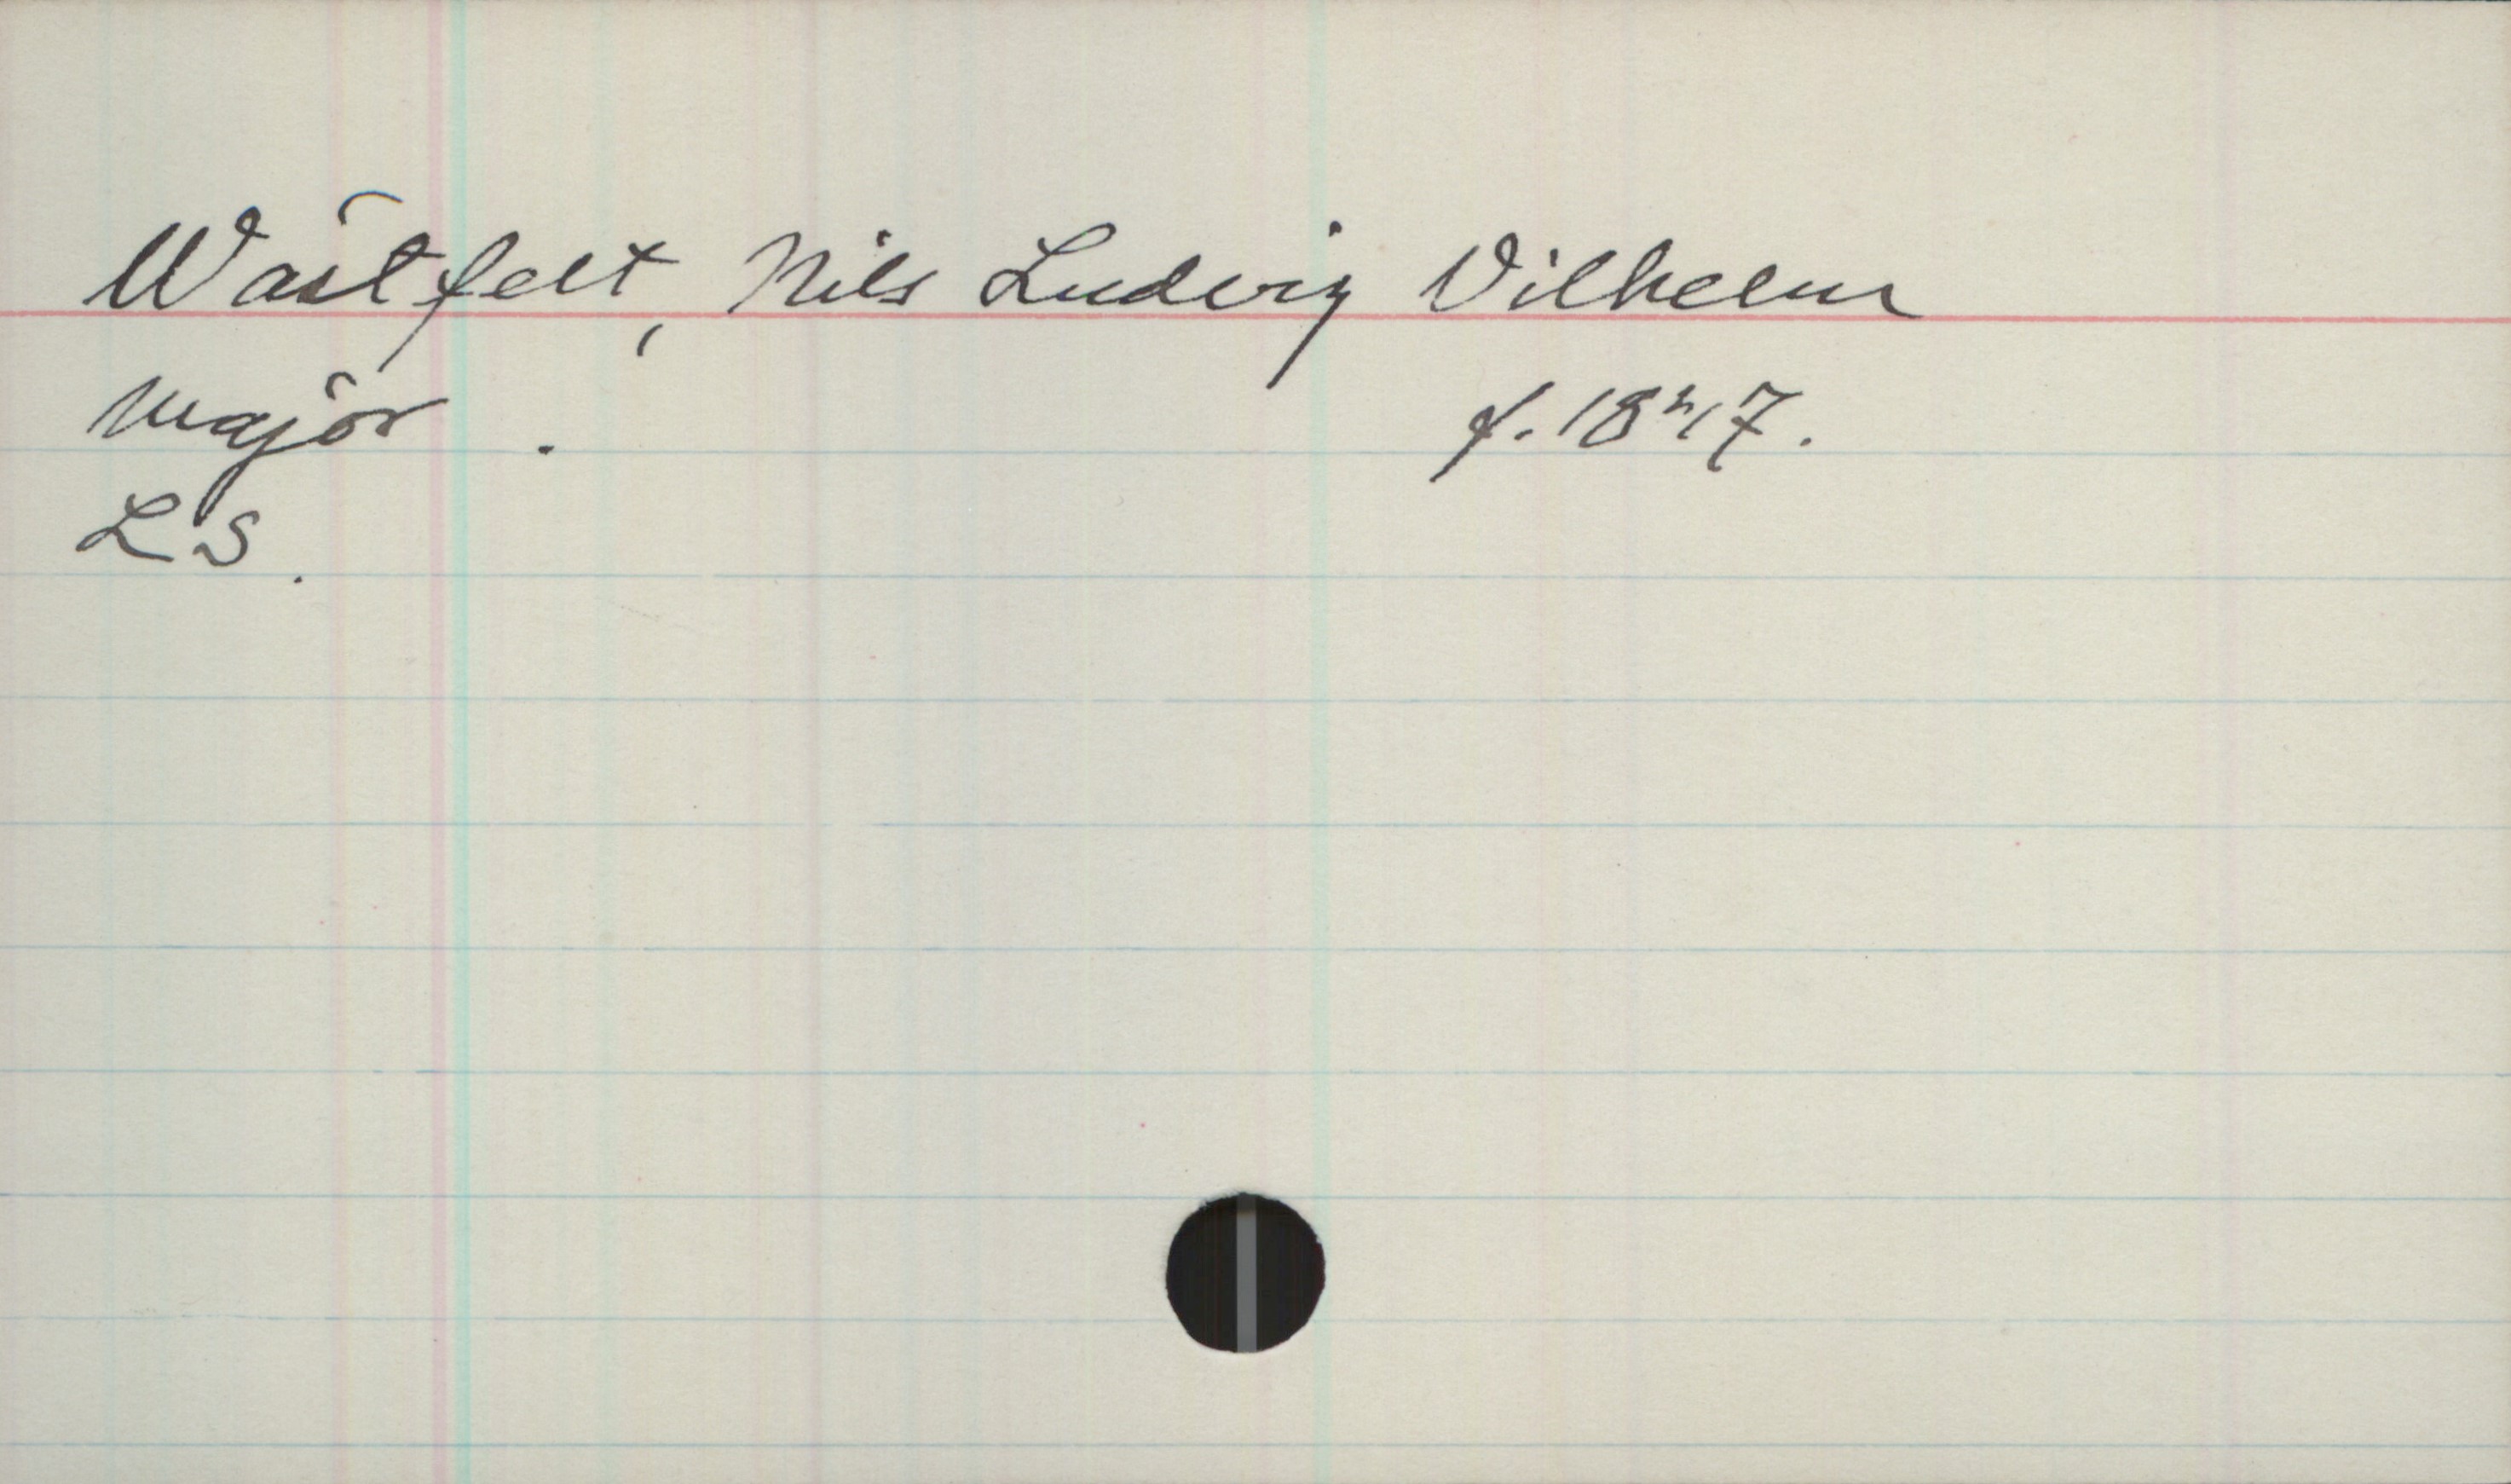 Wästfelt, Nils Ludvig Vilhelm
Major. f. 1847.
LS.